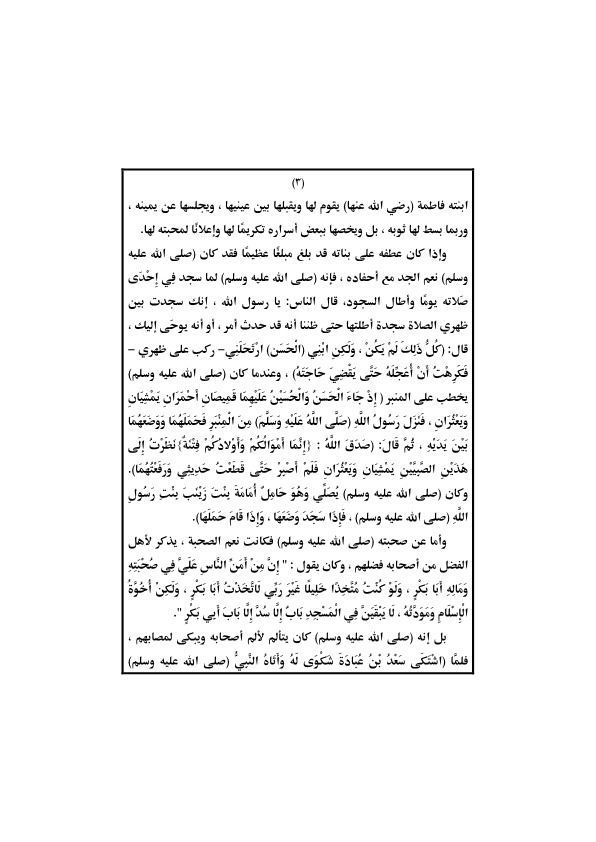 (٣)
ابنته فاطمة (رضي الله عنها) يقوم لها ويقبلها بين عينيها ، ويجلسها عن يمينه ،
وربما بسط لها ثوبه ، بل ويخصها ببعض أسراره تكريمًا لها وإعلانًا لمحبته لها.
وإذا كان عطفه على بناته قد بلغ مبلغًا عظيمًا فقد كان (صلى الله عليه
وسلم) نعم الجد مع أحفاده ، فإنه (صلى الله عليه وسلم) لما سجد فِي إِحْدَى
صَلاته يومًا وأطال السجود، قال الناس: يا رسول الله ، إنك سجدت بين
ظهري الصلاة سجدة أطلتها حتى ظننا أنه قد حدث أمر ، أو أنه يوحَى إليك ،
قال: (كُلُّ ذَلِكَ لَمْ يَكُنْ ، وَلَكِنِ ابْنِي (الْحَسَن) ارْتَحَلَنِي– ركب على ظهري –
فَكَرِهْتُ أَنْ أُعَجِّلَهُ حَتَّى يَقْضِيَ حَاجَتَهُ) ، وعندما كان (صلى الله عليه وسلم)
يخطب على المنبر ( إِذْ جَاءَ الْحَسَنُ وَالْحُسَيْنُ عَلَيْهِمَا قَمِيصَانِ أَحْمَرَانِ يَمْشِيَانِ
وَيَعْثُرَانِ ، فَنَزَلَ رَسُولُ اللَّهِ (صَلَّى اللَّهُ عَلَيْهِ وَسَلَّمَ) مِنَ الْمِنْبَرِ فَحَمَلَهُمَا وَوَضَعَهُمَا
بَيْنَ يَدَيْهِ ، ثُمَّ قَالَ: (صَدَقَ اللَّهُ : {إِنَّمَا أَمْوَالُكُمْ وَأَوْلادُكُمْ فِتْنَةٌ} نَظَرْتُ إِلَى
هَذَيْنِ الصَّبِيَّيْنِ يَمْشِيَانِ وَيَعْثُرَانِ فَلَمْ أَصْبِرْ حَتَّى قَطَعْتُ حَدِيثِي وَرَفَعْتُهُمَا).
وكان (صلى الله عليه وسلم) يُصَلِّي وَهُوَ حَامِلٌ أُمَامَةَ بِنْتَ زَيْنَبَ بِنْتِ رَسُولِ
اللَّهِ (صلى الله عليه وسلم) ، فَإِذَا سَجَدَ وَضَعَهَا ، وَإِذَا قَامَ حَمَلَهَا).
وأما عن صحبته (صلى الله عليه وسلم) فكانت نعم الصحبة ، يذكر لأهل
الفضل من أصحابه فضلهم ، وكان يقول : " إِنَّ مِنْ أَمَنِّ النَّاسِ عَلَيَّ فِي صُحْبَتِهِ
وَمَالِهِ أَبَا بَكْرٍ ، وَلَوْ كُنْتُ مُتَّخِذًا خَلِيلًا غَيْرَ رَبِّي لَاتَّخَذْتُ أَبَا بَكْرٍ ، وَلَكِنْ أُخُوَّةُ
الْإِسْلَامِ وَمَوَدَّتُهُ ، لَا يَبْقَيَنَّ فِي الْمَسْجِدِ بَابٌ إِلَّا سُدَّ إِلَّا بَابَ أَبِي بَكْرٍ ".
بل إنه (صلى الله عليه وسلم) كان يتألم لألم أصحابه ويبكى لمصابهم ،
فلمَّا (اشْتَكَى سَعْدُ بْنُ عُبَادَةَ شَكْوَى لَهُ وَأَتَاهُ النَّبِيُّ (صلى الله عليه وسلم)